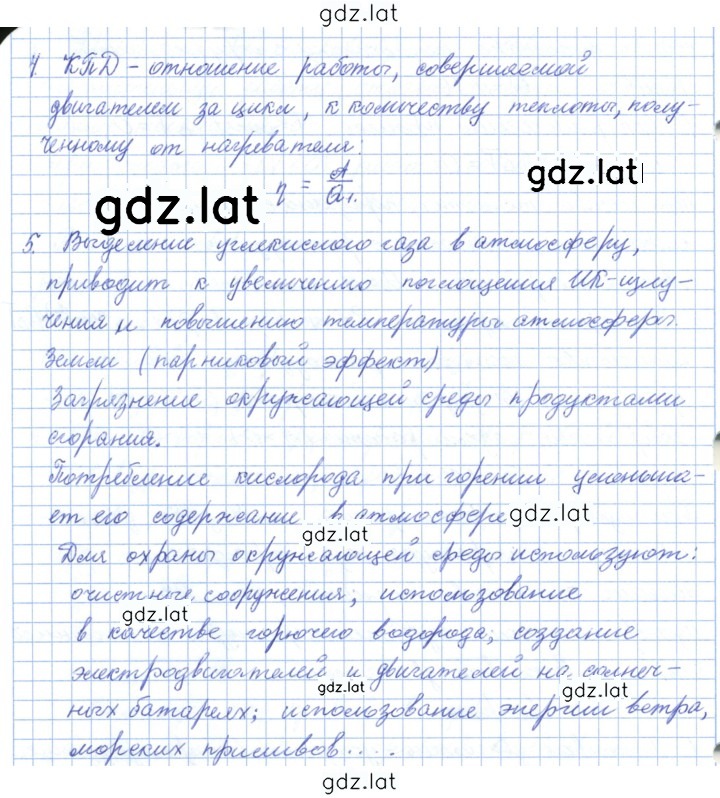 gdz.lat
4. КПД – отношение работы, совершаемой
двигателем за цикл, к количеству теплоты, полу-
ченному от нагревателя:
gdz.lat
η = A/Q₁.
gdz.lat
5. Выделение углекислого газа в атмосферу,
приводит к увеличению поглощения ИК-излу-
чения и повышению температуры атмосферы.
Земли (парниковый эффект)
Загрязнение окружающей среды продуктами
сгорания.
Потребление кислорода при горении уменьша-
ет его содержание в атмосфере gdz.lat
gdz.lat
Для охраны окружающей среды используют:
очистные сооружения; использование
gdz.lat
в качестве горючего водорода; создание
электродвигателей и двигателей на солнеч-
gdz.lat
gdz.lat
ных батареях; использование энергии ветра,
морских приливов.....
gdz.lat